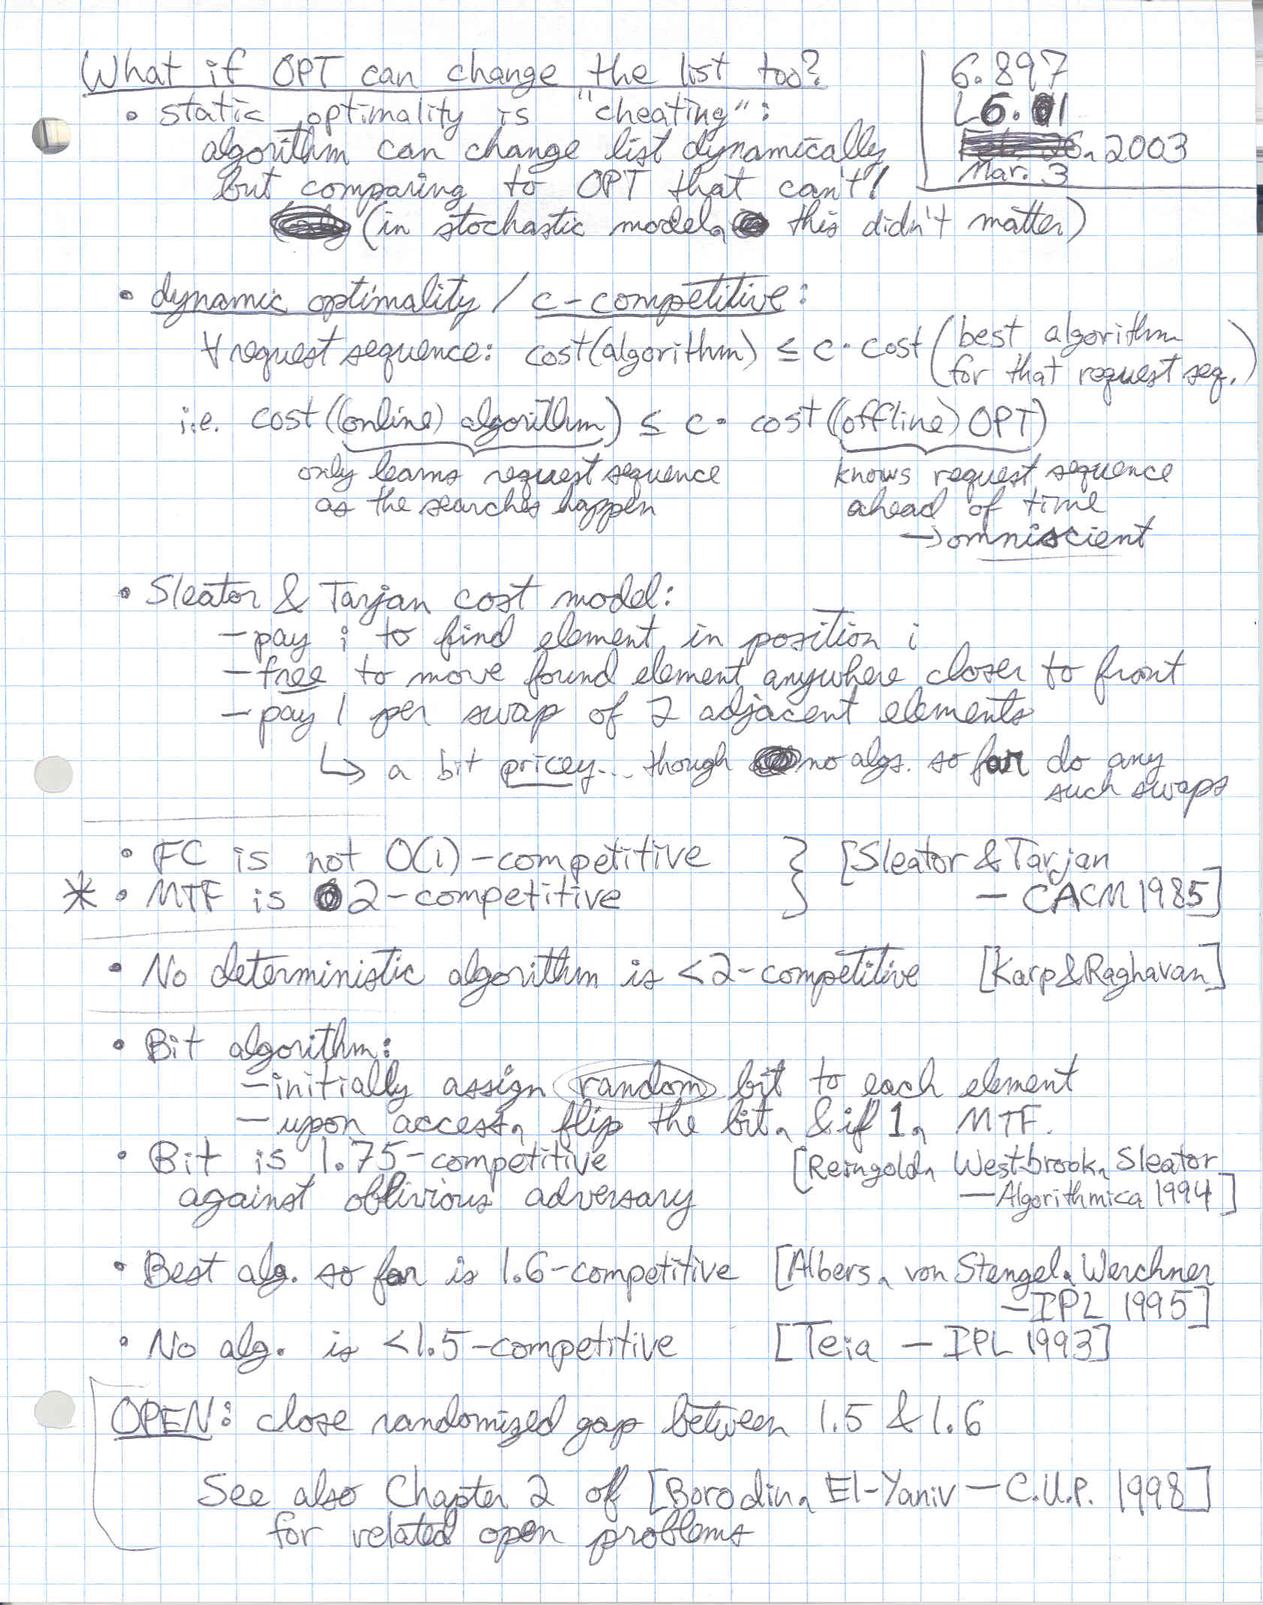 What if OPT can change the list too?
6.897
L6.01
2003
Mar. 3
• static optimality is "cheating":
algorithm can change list dynamically
but comparing to OPT that can't!
(in stochastic model, this didn't matter)
• dynamic optimality / c-competitive:
∀ request sequence: cost(algorithm) ≤ c · cost(best algorithm
for that request seq.)
i.e. cost((online) algorithm) ≤ c · cost((offline) OPT)
only learns request sequence
as the searches happen
knows request sequence
ahead of time
→ omniscient
• Sleator & Tarjan cost model:
— pay i to find element in position i
— free to move found element anywhere closer to front
— pay 1 per swap of 2 adjacent elements
↳ a bit pricey... though no algs. so far do any
such swaps
• FC is not O(1)-competitive
* • MTF is 2-competitive
} [Sleator & Tarjan
— CACM 1985]
• No deterministic algorithm is <2-competitive [Karp & Raghavan]
• Bit algorithm:
— initially assign random bit to each element
— upon access, flip the bit, & if 1, MTF.
• Bit is 1.75-competitive
against oblivious adversary
[Reingold, Westbrook, Sleator
— Algorithmica 1994]
• Best alg. so far is 1.6-competitive [Albers, von Stengel, Werchner
— IPL 1995]
• No alg. is <1.5-competitive [Teia — IPL 1993]
OPEN: close randomized gap between 1.5 & 1.6
See also Chapter 2 of [Borodin, El-Yaniv — C.U.P. 1998]
for related open problems